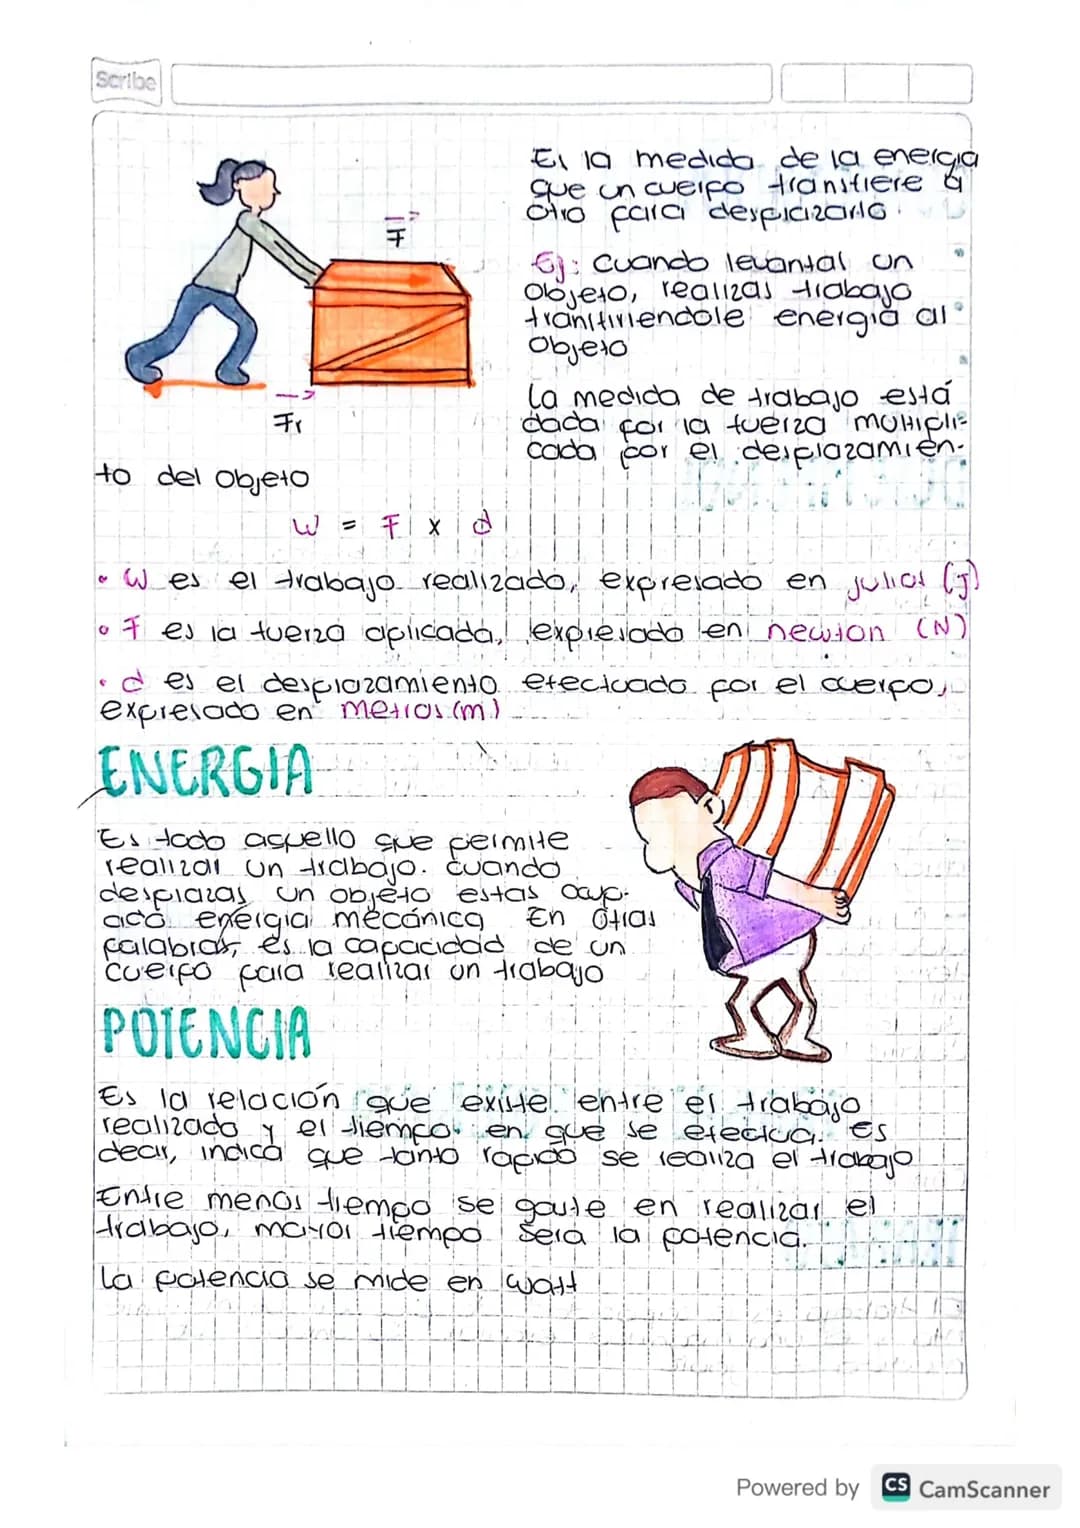 Scribe
Es la medida de la energia
que un cuerpo transfiere a
otro para desplazarlo.
F
Ej: Cuando levantas un
objeto, realizas trabajo
transfiriendole energia al
objeto
La medida de trabajo está
dada por la fuerza multipli-
cada por el desplazamien-
Fr
to del objeto
W = F x d
• W es el trabajo realizado, expresado en julios (J)
• F es la fuerza aplicada, expresado en newton (N)
• d es el desplazamiento efectuado por el cuerpo,
expresado en metros (m)
ENERGIA
Es todo aquello que permite
realizar un trabajo. Cuando
desplazas un objeto estas ocup-
ado energia mecánica En otras
palabras, es la capacidad de un
cuerpo para realizar un trabajo
POTENCIA
Es la relación que existe entre el trabajo
realizado y el tiempo en que se efectua. Es
decir, indica que tanto rapido se realiza el trabajo
Entre menos tiempo se gaste en realizar el
trabajo, mayor tiempo sera la potencia.
La potencia se mide en watt
Powered by CS CamScanner